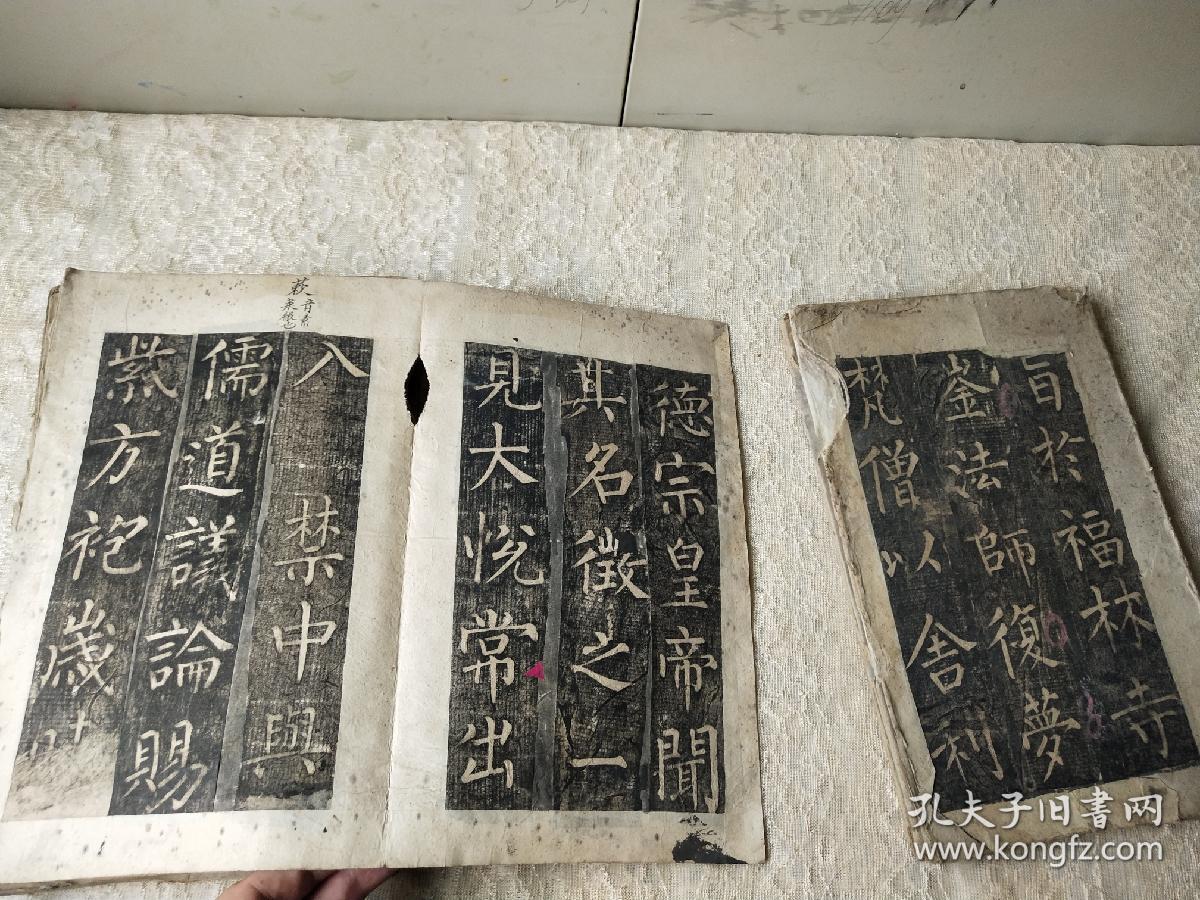 旨於福林寺
崟法師復夢
梵僧以舍利
德宗皇帝聞
其名徵之一
見大悅常出
入禁中與
儒道議論賜
紫方袍歲時
音素
孔夫子旧书网
www.kongfz.com